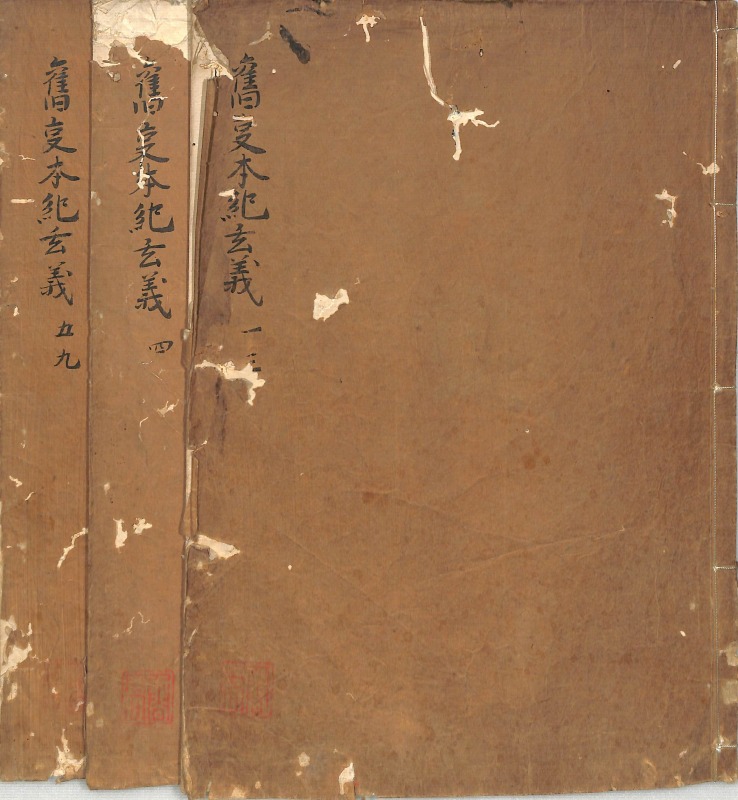 舊叓本紀玄義 一 三
舊叓本紀玄義 四
舊叓本紀玄義 五 九